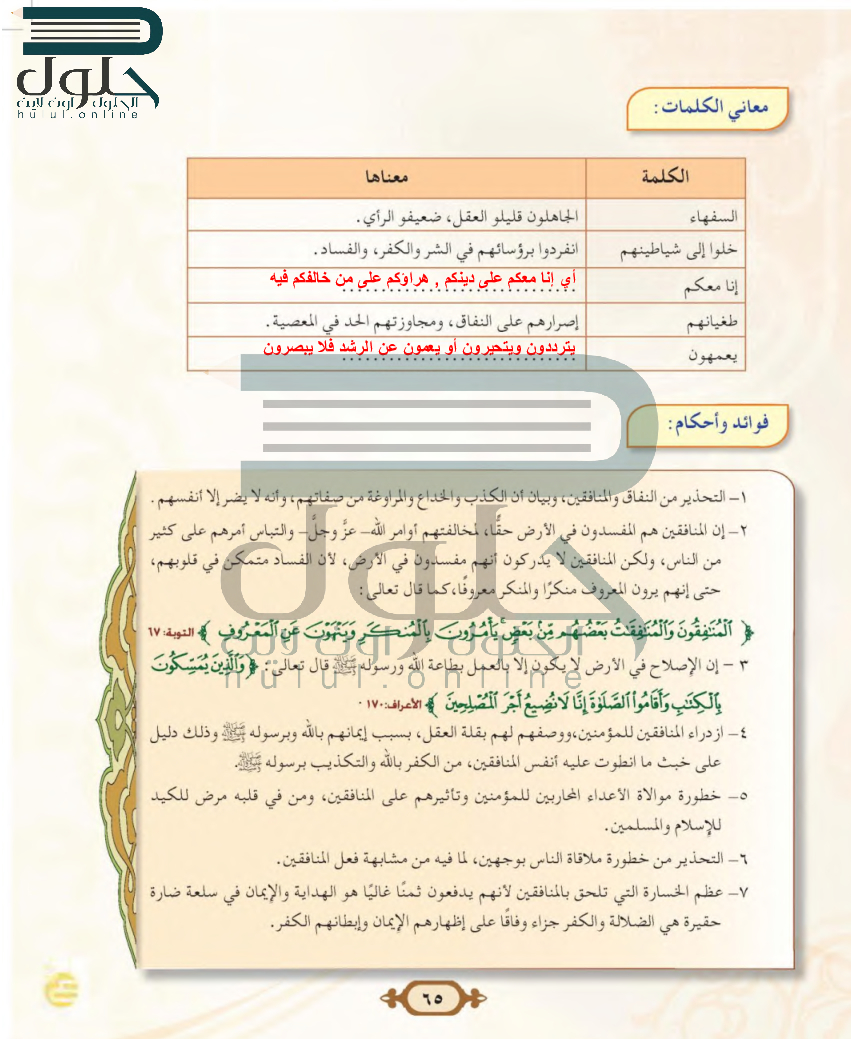 حلول
الحلول اون لاين
hulul.online
معاني الكلمات :
الكلمة معناها
السفهاء الجاهلون قليلو العقل، ضعيفو الرأي.
خلوا إلى شياطينهم انفردوا برؤسائهم في الشر والكفر، والفساد.
إنا معكم أي إنا معكم على دينكم , هراؤكم على من خالفكم فيه
طغيانهم إصرارهم على النفاق، ومجاوزتهم الحد في المعصية.
يعمهون يترددون ويتحيرون أو يعمون عن الرشد فلا يبصرون
فوائد وأحكام :
١– التحذير من النفاق والمنافقين، وبيان أن الكذب والخداع والمراوغة من صفاتهم، وأنه لا يضر إلا أنفسهم.
٢– إن المنافقين هم المفسدون في الأرض حقًّا، لمخالفتهم أوامر الله– عزَّ وجلَّ– والتباس أمرهم على كثير
من الناس، ولكن المنافقين لا يدركون أنهم مفسدون في الأرض، لأن الفساد متمكن في قلوبهم،
حتى إنهم يرون المعروف منكرًا والمنكر معروفًا،كما قال تعالى:
﴿ الْمُنَافِقُونَ وَالْمُنَافِقَاتُ بَعْضُهُم مِّنْ بَعْضٍ يَأْمُرُونَ بِالْمُنكَرِ وَيَنْهَوْنَ عَنِ الْمَعْرُوفِ ﴾ التوبة: ٦٧
٣ – إن الإصلاح في الأرض لا يكون إلا بالعمل بطاعة الله ورسوله ﷺ قال تعالى: ﴿ وَالَّذِينَ يُمَسِّكُونَ
بِالْكِتَابِ وَأَقَامُوا الصَّلَوٰةَ إِنَّا لَا نُضِيعُ أَجْرَ الْمُصْلِحِينَ ﴾ الأعراف: ١٧٠ .
٤– ازدراء المنافقين للمؤمنين،ووصفهم لهم بقلة العقل، بسبب إيمانهم بالله وبرسوله ﷺ وذلك دليل
على خبث ما انطوت عليه أنفس المنافقين، من الكفر بالله والتكذيب برسوله ﷺ.
٥– خطورة موالاة الأعداء المحاربين للمؤمنين وتأثيرهم على المنافقين، ومن في قلبه مرض للكيد
للإسلام والمسلمين.
٦– التحذير من خطورة ملاقاة الناس بوجهين، لما فيه من مشابهة فعل المنافقين.
٧– عظم الخسارة التي تلحق بالمنافقين لأنهم يدفعون ثمنًا غاليًا هو الهداية والإيمان في سلعة ضارة
حقيرة هي الضلالة والكفر جزاء وفاقًا على إظهارهم الإيمان وإبطانهم الكفر.
حلول
الحلول اون لاين
hulul.online
٦٥